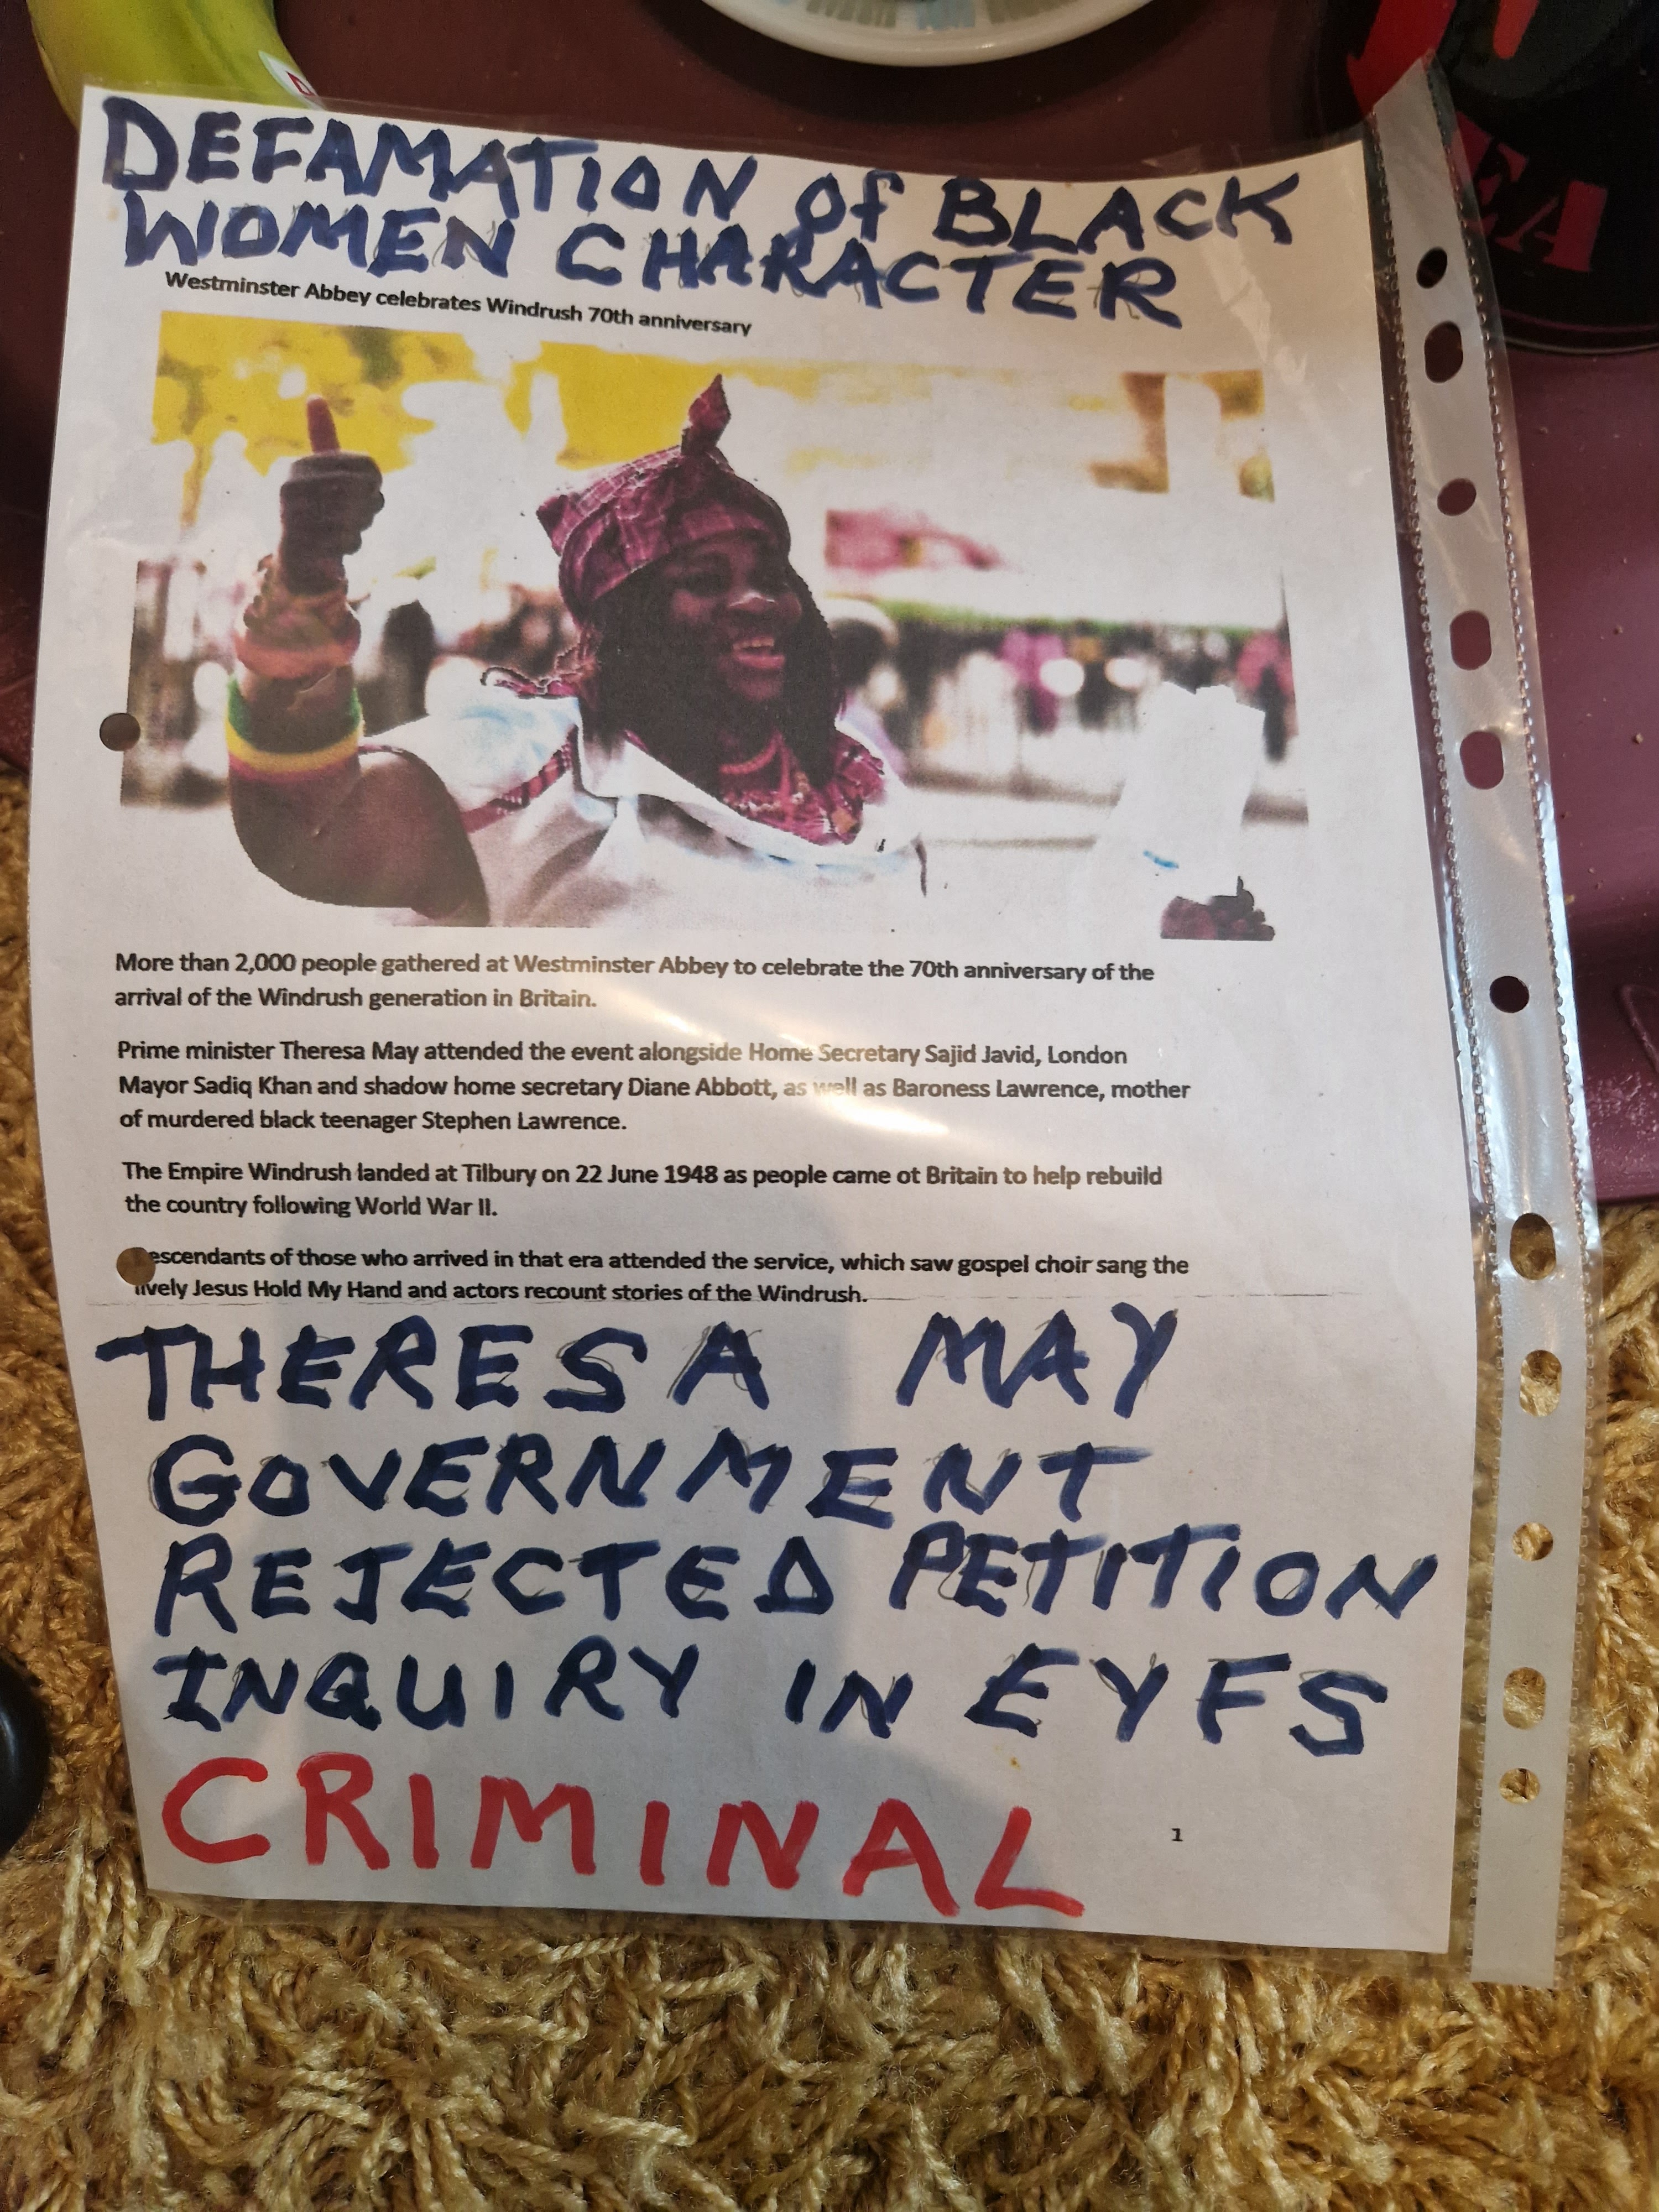 DEFAMATION of BLACK
WOMEN CHARACTER
Westminster Abbey celebrates Windrush 70th anniversary
More than 2,000 people gathered at Westminster Abbey to celebrate the 70th anniversary of the
arrival of the Windrush generation in Britain.
Prime minister Theresa May attended the event alongside Home Secretary Sajid Javid, London
Mayor Sadiq Khan and shadow home secretary Diane Abbott, as well as Baroness Lawrence, mother
of murdered black teenager Stephen Lawrence.
The Empire Windrush landed at Tilbury on 22 June 1948 as people came ot Britain to help rebuild
the country following World War II.
escendants of those who arrived in that era attended the service, which saw gospel choir sang the
lively Jesus Hold My Hand and actors recount stories of the Windrush.
THERESA MAY
GOVERNMENT
REJECTED PETITION
INQUIRY IN EYFS
CRIMINAL
1